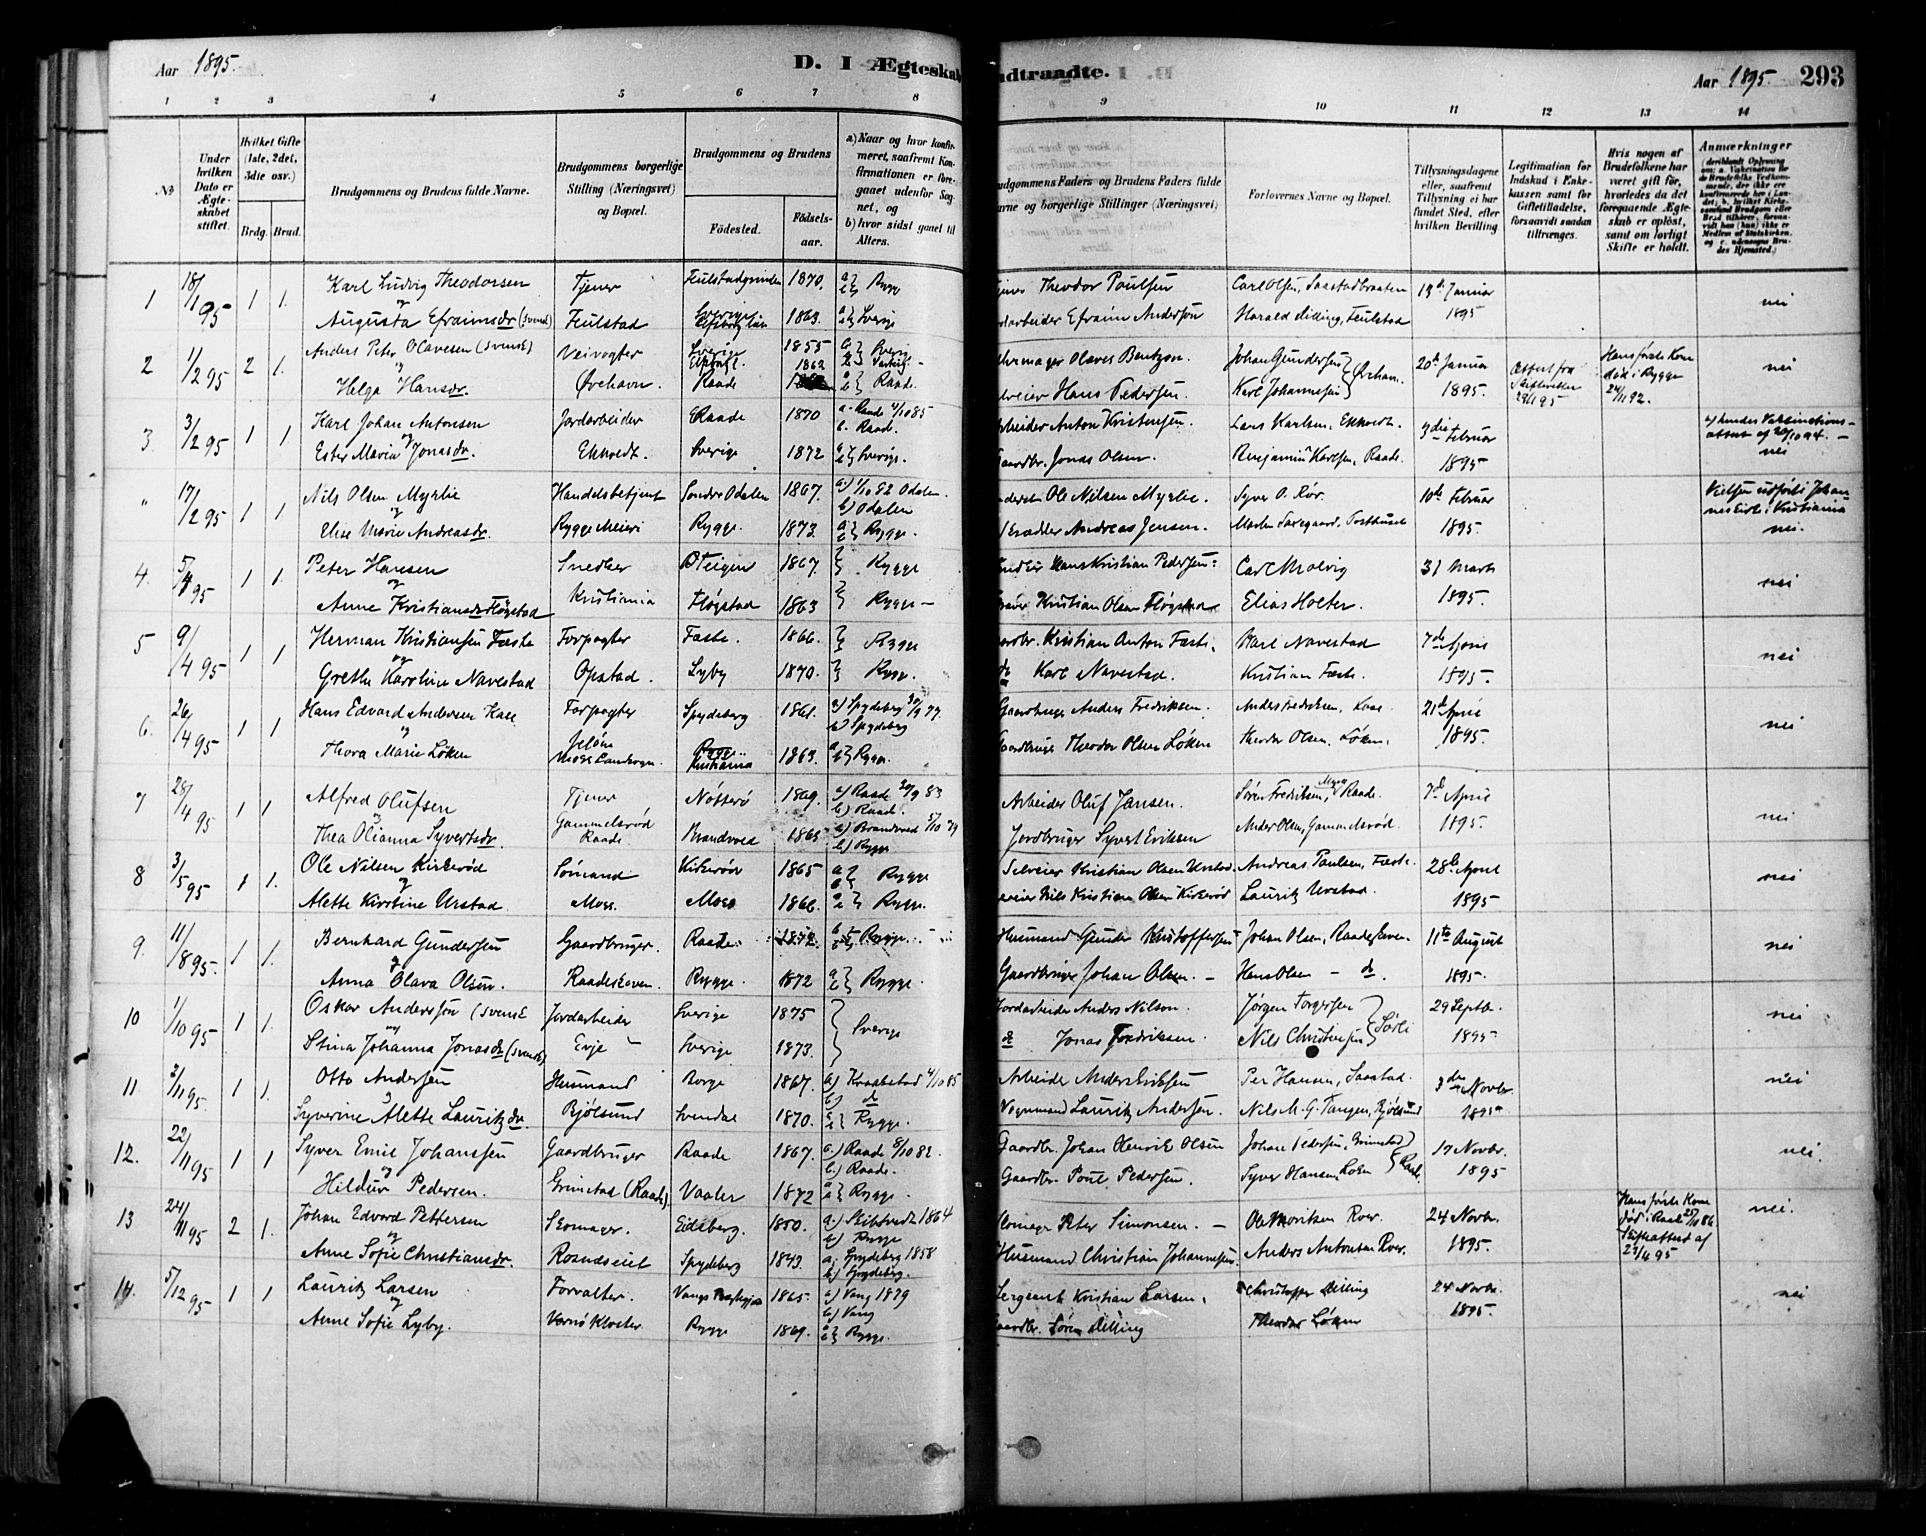 Aar 1895.
D. I Ægteskab
1 2 3 4 5 6 7 8
№
Under hvilken Dato er Ægteskabet stiftet.
Hvilket Gifte (1ste, 2det, 3die osv.)
Brdg. Brud.
Brudgommens og Brudens fulde Navne.
Brudgommens borgerlige Stilling (Næringsvei) og Bopæl.
Brudgommens og Brudens
Fødested. Fødselsaar.
a) Naar og hvor konfirmeret, saafremt Konfirmationen er foregaaet udenfor Sognet, og
b) hvor sidst gaaet til Alters.
1 18/1 95 1 1. Karl Ludvig Theodorsen Tjener 1870. a b } Rygge
og Augusta Efraimsdr (svensk) Feulstad Sverige 1863. a b } Sverige
2 1/2 95 2 1. Anders Peter Olavesen (svensk) Veivogter Sverige 1855 Sverige
og Helga Hansdr. Ørehavn. Raade 1862 a b } Raade
3 3/2 95 1 1 Karl Johan Antonsen Jordarbeider Raade 1870 a. Raade 4/10 85 b. Raade.
og Ester Maria Jonasdr. Ekholdt. Sverige 1872 a b } Sverige.
" 17/2 95 1 1 Nils Olsen Myrlie Handelsbetjent Søndre Odalen 1867. a) 1/10 82 Odalen. b) Odalen
og Elise Marie Andreasdr. Rygge Meieri Rygge. 1873. a b } Rygge.
4. 5/4 95 1 1. Peter Hansen Snedker Teigen 1867. } Rygge
og Anne Kristiansdr Fløgstad Kristiania Fløgstad 1863 } Rygge —
5 9/4 95 1 1 Herman Kristiansen Fæste Forpagter Fæste. 1866. } Rygge
og Grethe Karoline Navestad Opstad. Lyby 1870. } Rygge.
6. 26/4 95 1 1 Hans Edvard Andersen Kase Forpagter Spydeberg 1861. a) Spydeberg 30/9 77. b) Spydeberg
og Thora Marie Løken Jeløen Moss Landsogn. Kristiania 1863. a b } Rygge.
7 28/4 95 1 1 Alfred Olufsen Tjener Nøtterø 1869. a) Raade 30/9 83 b.) Raade.
og Thea Olianna Syvertsdr. Gammelsrød Raade 1865 a) 5/10 79 b.) Rygge
8 3/5 95 1 1. Ole Nilsen Kirkerød Sømand Kirkerød 1865 a b } Rygge
og Alette Kirstine Urstad Moss. Moss 1866. a b } Rygge.
9. 11/8 95. 1 1. Bernhard Gundersen Gaardbruger. Raade. 1872. Rygge.
og Anna Olava Olsen. Raadeskoven. Rygge. 1872 a b } Rygge.
10 1/10 95 1 1. Oskar Andersson (svensk Jordarbeider Sverige 1875 } Sverige
og Stina Johanna Jonasdr (svensk) Evje Sverige 1873.
11 3/11 95. 1 1. Otto Andersen Husmand Borge 1867. a) Kraakstad 4/10 85 b) do
og Syverine Alette Lauritzdr. Bjølsund 1870. a b } Rygge.
12. 22/11 95 1 1 Syver Emil Johanssen Gaardbruger Raade 1867. a.) Raade 8/10 82. b.) Raade.
og Hildur Pedersen. Grimstad (Raade). Vaaler 1872 a b } Rygge.
13 24/11 95 2 1. Johan Edvard Pettersen Skomager. Eidsberg. 1850. a.) 1864 b) Rygge
og Anne Sofie Christiansdr. Rosnæseiet Spydeberg 1843. a. Spydeberg 1858 b.) Spydeberg.
14. 5/12 95 1 1 Lauritz Larsen Forvalter. 1865. a) Vang 1879 b) Vang
og Anne Sofie Lyby. Værnø Kloster. Rygge 1869. a b } Rygge.
ndtraadte.
Aar 1895. 293
9 10 11 12 13 14
udgommens Faders og Brudens Faders fulde avne og borgerlige Stillinger (Næringsvei)
Forlovernes Navne og Bopæl.
Tillysningsdagene eller, saafremt Tillysning ei har fundet Sted, efter hvilken Bevilling
Legitimation for Indskud i Enkekassen samt for Giftetilladelse, forsaavidt saadan tiltrænges.
Hvis nogen af Brudefolkene har været gift før, hvorledes da det foregaaende Ægteskab er opløst, samt om lovligt Skifte er holdt.
Anmærkninger
Theodor Poulsen Carl Olsen, Saastadbraaten 13de Januar nei
Efraim Andersøn Harald Dilling, Feulstad 1895
Olaves Bentzon. Johan Gundersen } Ørehavn. 20de Januar Attest fra Skifteretten 29/1 95 Hans første Kone død i Rygge 24/1 92. nei
Hans Pedersen. Karl Johannesen 1895.
arbeider Anton Kristensen. Lars Karlsen. Ekholdt. 3die Februar attest af 20/10 94. —
Gaardbr. Jonas Olsen. Benjamin Karlsen, Raade. 1895 nei
Ole Nilsen Myrlie. Syver O. Rør. 10de Februar Vielsen udført i Johannes Kirke i Kristiania
Andreas Jensen. 1895. nei.
Hans Kristian Pedersen. Carl Molvig 31 Marts nei
Kristian Olsen Fløgstad Elias Holter. 1895.
ardbr. Kristian Anton Fæste. Karl Navestad 7de April nei
do Karl Navestad. Kristian Fæste. 1895.
Gaardbruger Anders Fredriksen. Anders Fredriksen, Kase 21de April nei
Gaardbruger Theodor Olsen Løken Theodor Olsen. Løken. 1895.
Arbeider Oluf Jansen. Søren Fredriksen, Raade. 7de April nei
Jordbruger Syvert Eriksen Anders Olsen, Gammelsrød. 1895.
Selveier Kristian Olsen Urstad. Andreas Paulsen, Fæste. 28de April nei
eier Nils Kristian Olsen Kirkerød Lauritz Urstad. 1895
Husmand Gunder Kristoffersen Johan Olsen, Raadeskoven. 11te August nei
Gaardbruger Johan Olsen. — Hans Olsen — do. 1895.
Jordarbeider Anders Nilson. Jørgen Torgersen } Sørli 29 Septbr. nei
do Jonas Fredriksen. Nils Christensen 1895
Arbeider Anders Eriksen Per Hansen, Saastad. 3die Novbr. nei
Vognmand Lauritz Andersen. Nils M. G. Tangen, Bjølsund 1895
Gaardbr. Johan Henrik Olsen Johan Pedersen, Grimstad } Raade. 17 Novbr. nei.
Gaardbr. Poul Pedersen. Syver Hansen 1895
Skomager Peter Simonsen. — Ole Moritsen Rør. 24 Novbr. Hans første Kone død i Raade 27/1 86 Skifteattest af 23/4 95 nei.
Husmand Christian Johannesen. Anders Antonsen Rør. 1895.
Sergeant Kristian Larsen. Christoffer Dilling 24 Novbr. nei
Gaardbr. Søren Dilling Theodor Løken 1895.